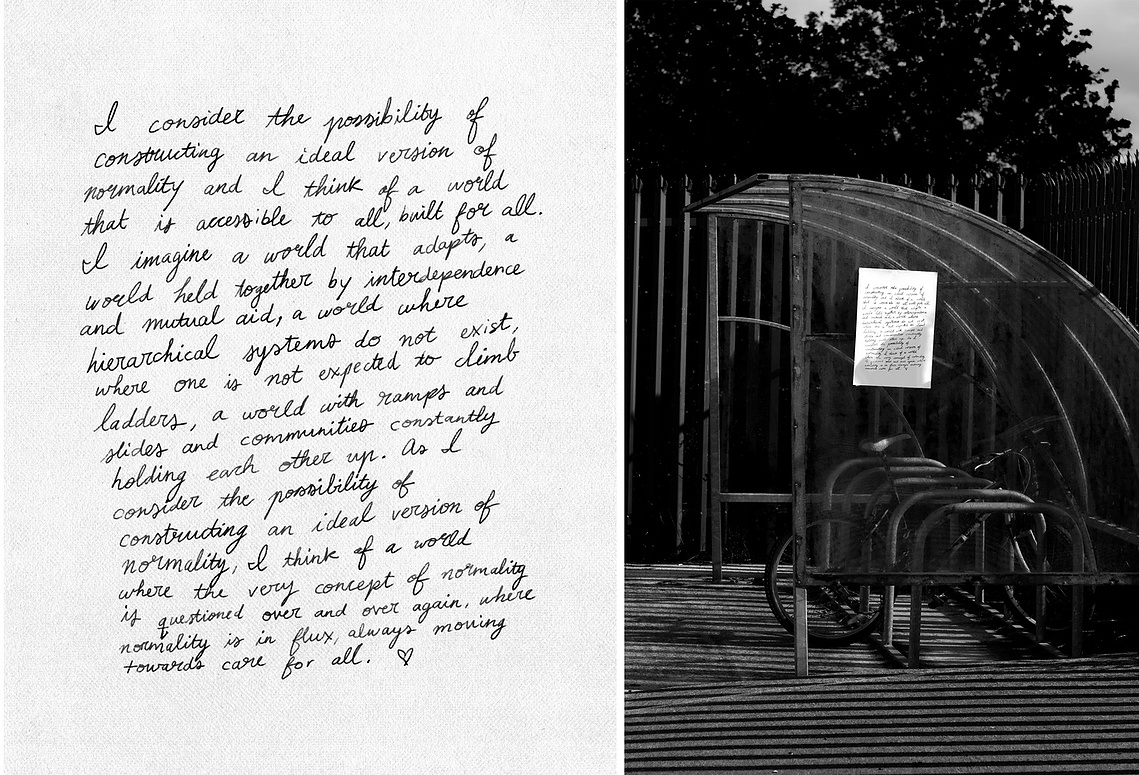 I consider the possibility of
constructing an ideal version of
normality and I think of a world
that is accessible to all, built for all.
I imagine a world that adapts, a
world held together by interdependence
and mutual aid, a world where
hierarchical systems do not exist,
where one is not expected to climb
ladders, a world with ramps and
slides and communities constantly
holding each other up. As I
consider the possibility of
constructing an ideal version of
normality, I think of a world
where the very concept of normality
is questioned over and over again, where
normality is in flux, always moving
towards care for all. ♡